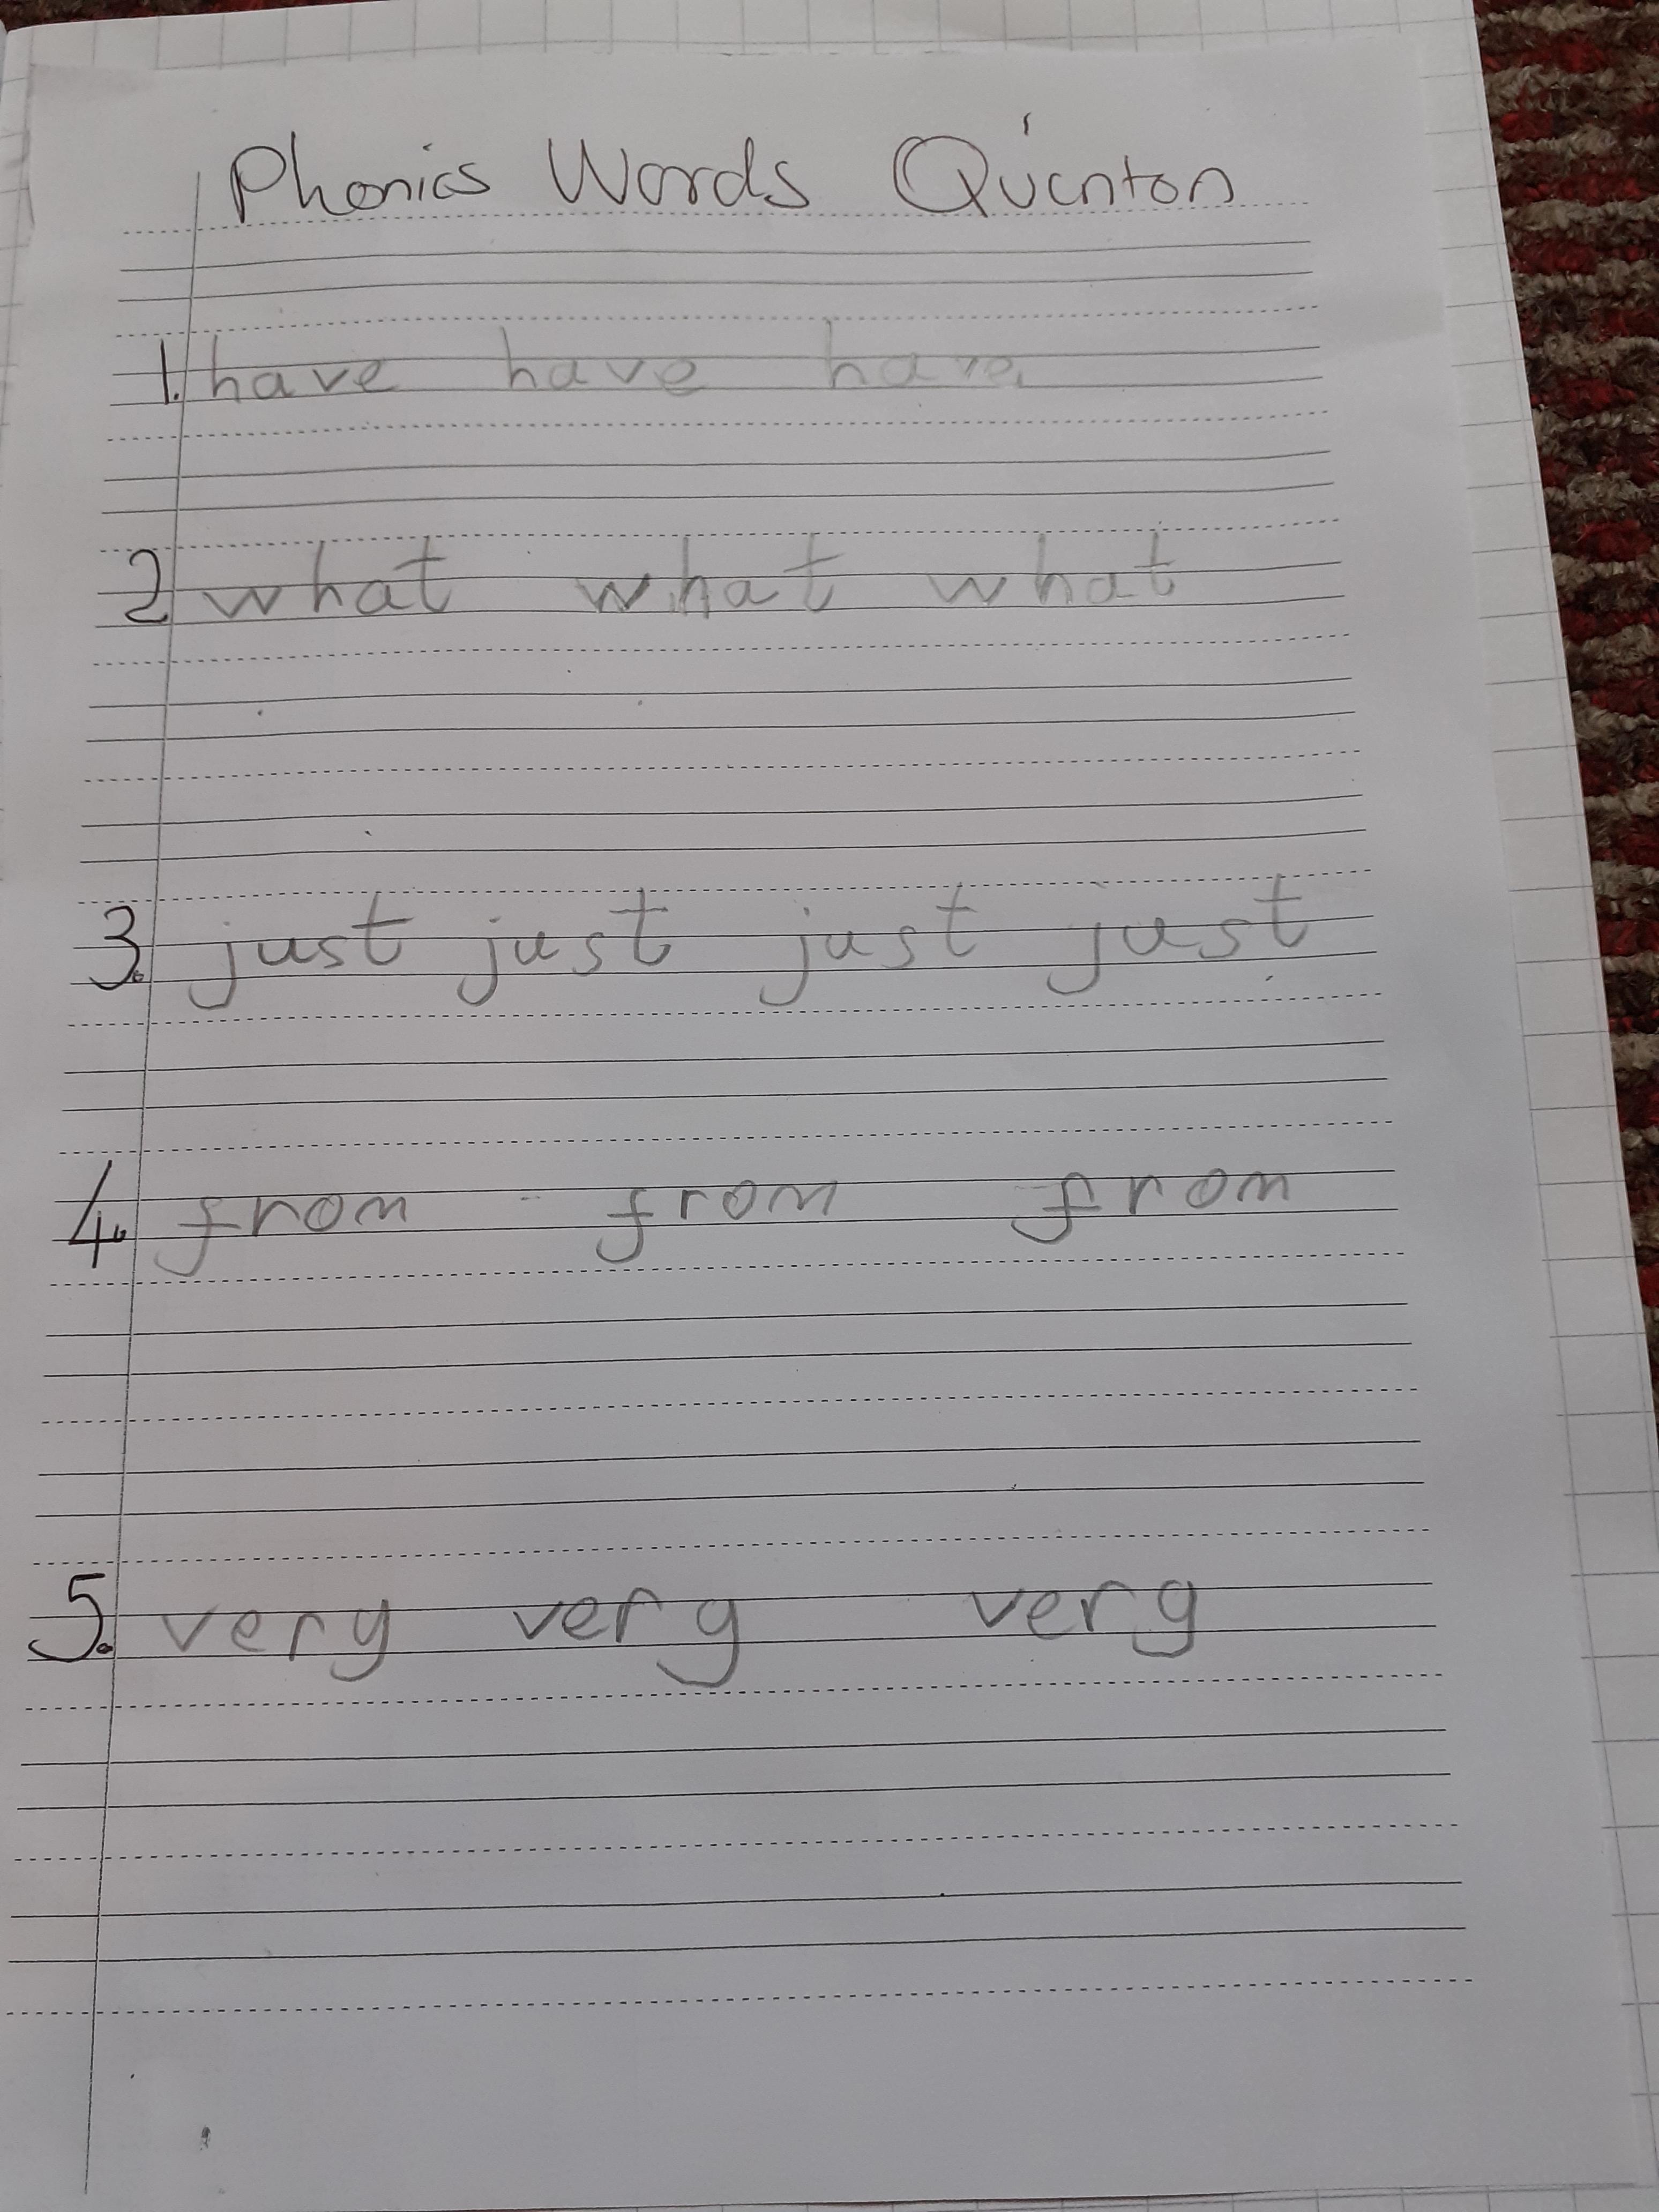 Phonics Words Quenton
1. have have have
2 what what what
3. just just just just
4. from from from
5. very very very